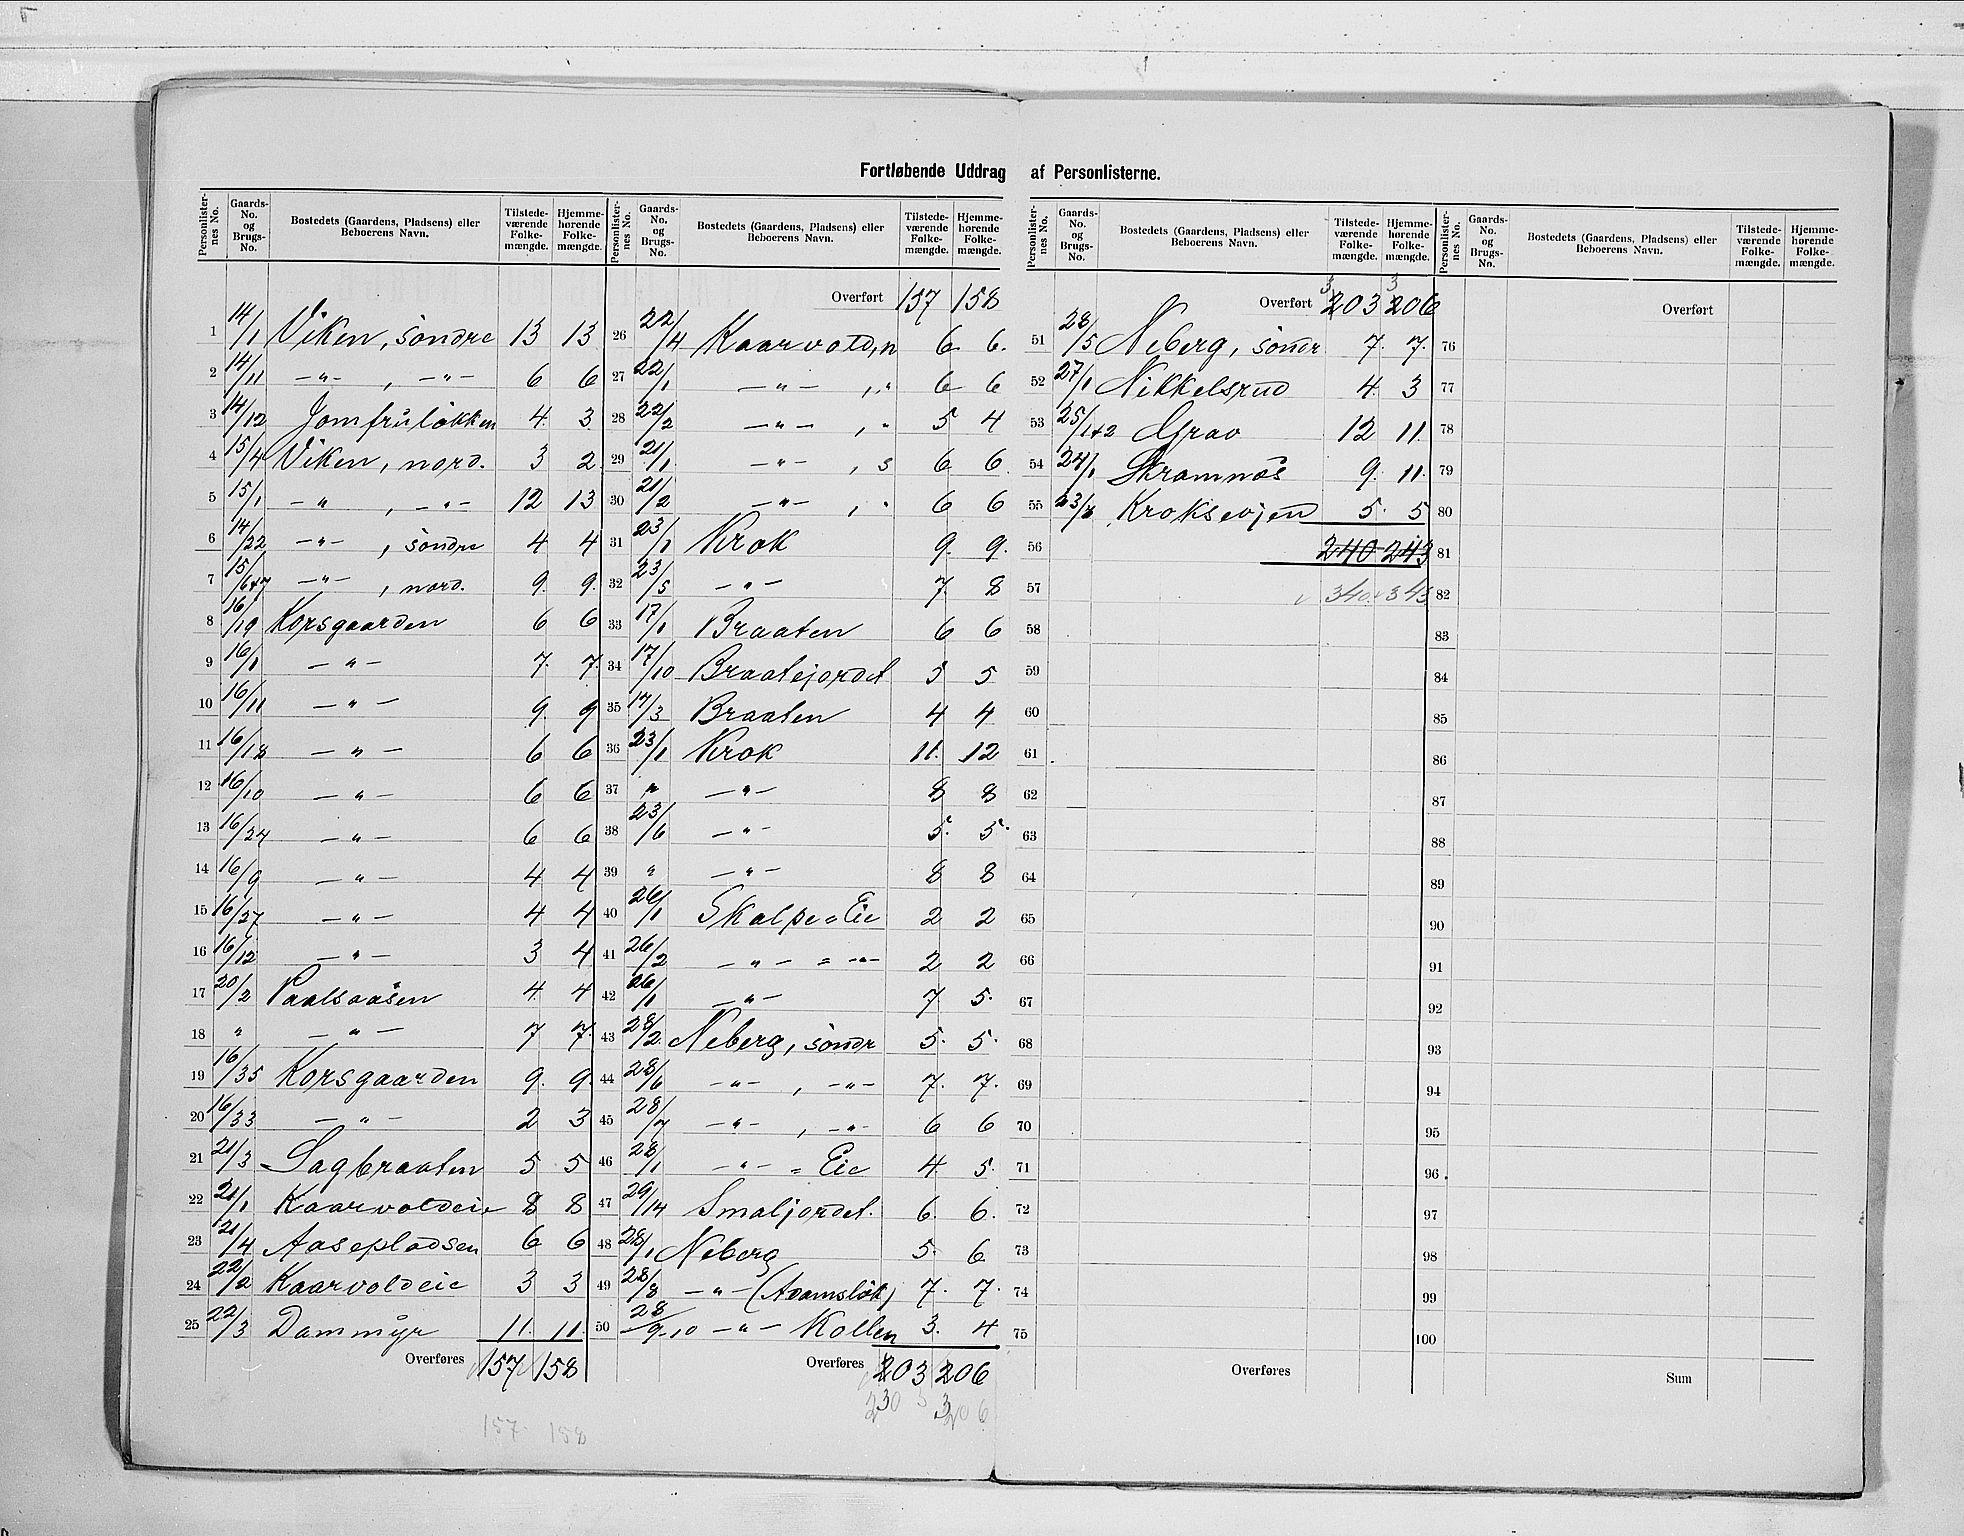 Fortløbende Uddrag af Personlisterne.
Personlister-nes No. Gaards-No. og Brugs-No. Bostedets (Gaardens, Pladsens) eller Beboerens Navn. Tilstede-værende Folke-mængde. Hjemme-hørende Folke-mængde.
1 14/1 Viken, söndre 13 13
2 14/11 —„— , —„— 6 6
3 14/12 Jomfrulökken 4 3
4 15/4 Viken, nord. 3 2
5 15/1 —„ , —„— 12 13
6 14/22 —„— , söndre 4 4
7 15/6+7 —„— , nord. 9 9
8 16/19 Korsgaarden 6 6
9 16/1 —„— 7 7
10 16/11 —„— 9 9
11 16/18 —„— 6 6
12 16/10 —„— 6 6
13 16/24 —„— 6 6
14 16/9 —„— 4 4
15 16/27 —„— 4 4
16 16/12 —„— 3 4
17 20/2 Paalsaasen 4 4
18 „ —„— 7 7
19 16/35 Korsgaarden 9 9
20 16/33 —„— 2 3
21 21/3 Sagbraaten 5 5
22 21/1 Kaarvoldeie 8 8
23 21/4 Aasepladsen 6 6
24 22/2 Kaarvoldeie 3 3
25 22/3 Dammyr 11 11
Overføres 157 158
157 158
Personlister-nes No. Gaards-No. og Brugs-No. Bostedets (Gaardens, Pladsens) eller Beboerens Navn. Tilstede-værende Folke-mængde. Hjemme-hørende Folke-mængde.
Overført 157 158
26 22/4 Kaarvold, n 6 6
27 22/1 —„— , „ 6 6
28 22/2 —„— , „ 5 4
29 21/1 —„— , s 6 6
30 21/2 —„— , „ 6 6
31 23/1 Krok 9 9
32 23/5 —„— 7 8
33 17/1 Braaten 6 6
34 17/10 Braatejordet 5 5
35 17/3 Braaten 4 4
36 23/1 Krok 11 12
37 „ —„— 8 8
38 23/6 —„— 5 5
39 „ —„— 8 8
40 26/1 Skalpe = Eie 2 2
41 26/2 —„— = —„— 2 2
42 26/1 —„— 7 5
43 28/2 Neberg, söndr 5 5
44 28/6 —„— , —„— 7 7
45 28/7 —„— , —„— 6 6
46 28/1 —„— = Eie 4 5
47 29/14 Smaljordet. 6 6
48 28/1 Neberg 5 6
49 28/8 —„— (Adamslök) 7 7
50 28/9-10 —„— Kollen 3 4
Overføres 203 206
303 306
Personlister-nes No. Gaards-No. og Brugs-No. Bostedets (Gaardens, Pladsens) eller Beboerens Navn. Tilstede-værende Folke-mængde. Hjemme-hørende Folke-mængde.
3 3
Overført 203 206
51 28/5 Neberg, söndr 7 7
52 27/1 Nikkelsrud 4 3
53 25/1+2 Grav 12 11
54 24/1 Skramnäs 9 11
55 Kroksevjen 5 5
56 240 243
57 340 343
58
59
60
61
62
63
64
65
66
67
68
69
70
71
72
73
74
75
Overføres
Personlister-nes No. Gaards-No. og Brugs-No. Bostedets (Gaardens, Pladsens) eller Beboerens Navn. Tilstede-værende Folke-mængde. Hjemme-hørende Folke-mængde.
Overført
76
77
78
79
80
81
82
83
84
85
86
87
88
89
90
91
92
93
94
95
96
97
98
99
100
Sum